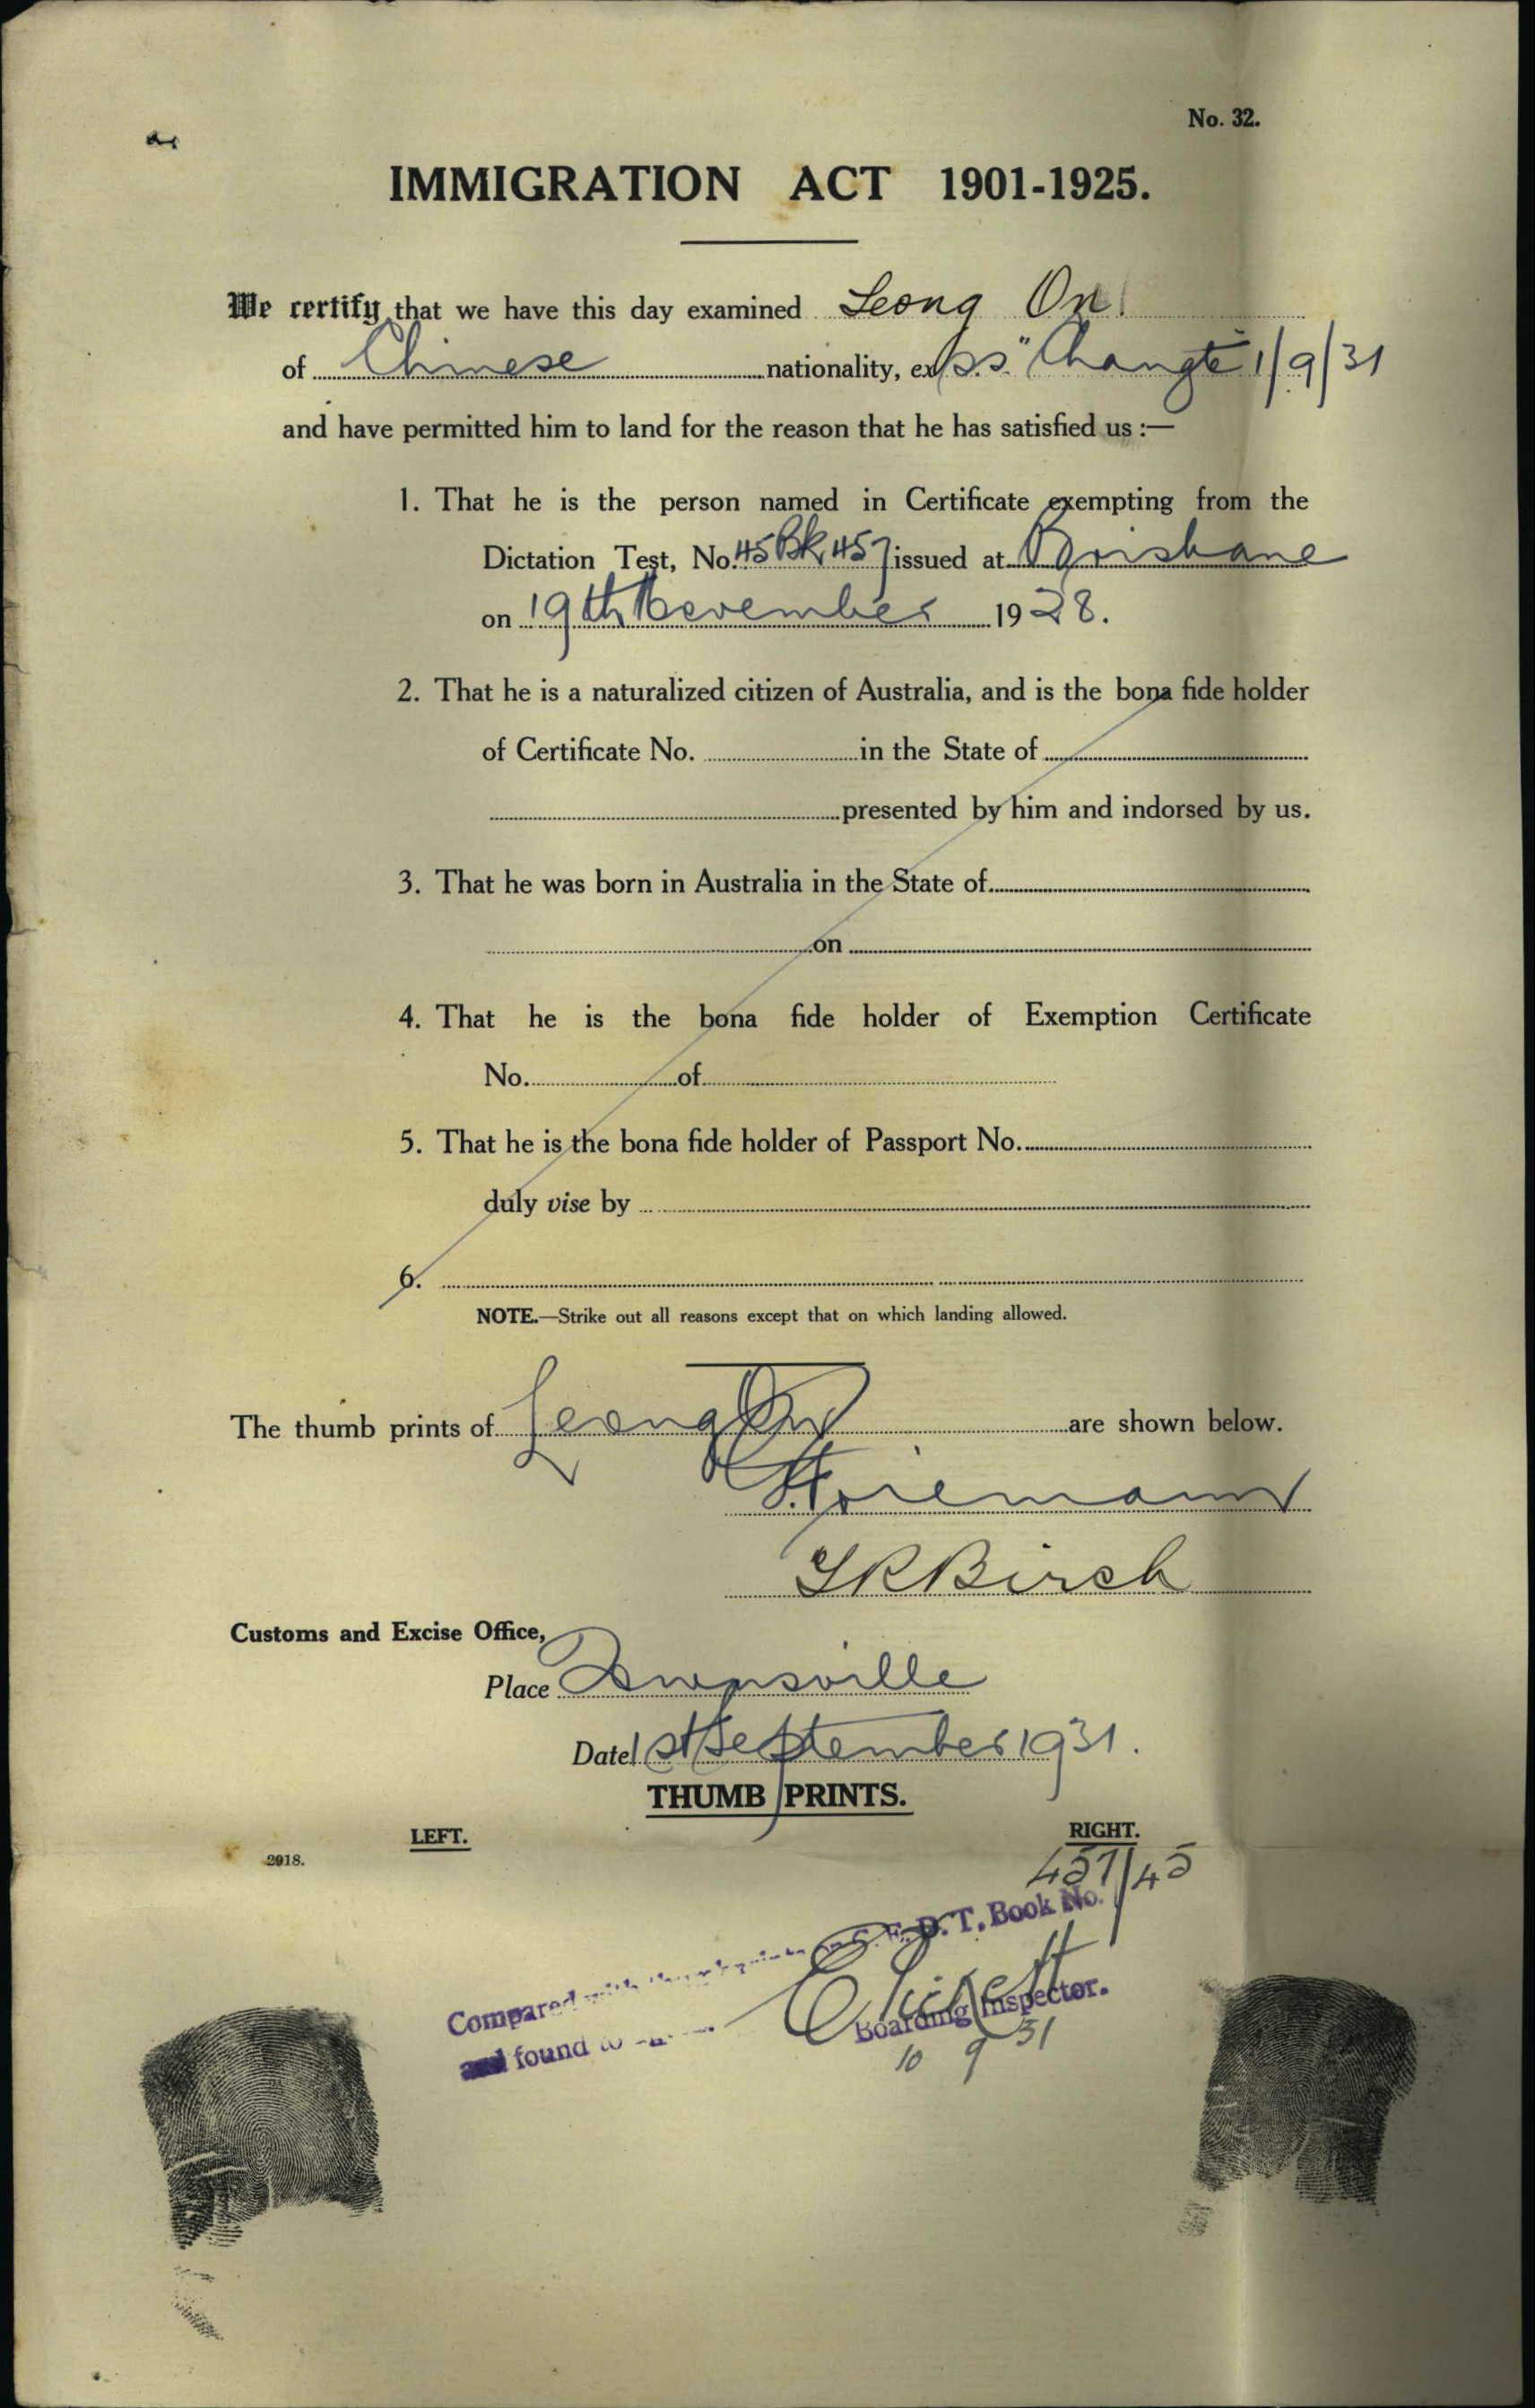 No. 32.
IMMIGRATION ACT 1901-1925.
We certify that we have this day examined Leong On
of Chinese nationality, ex s.s. "Changte" 1/9/31
and have permitted him to land for the reason that he has satisfied us :—
1. That he is the person named in Certificate exempting from the
Dictation Test, No. 45 Bk 457 issued at Brisbane
on 19th November 1928.
2. That he is a naturalized citizen of Australia, and is the bona fide holder
of Certificate No. in the State of
presented by him and indorsed by us.
3. That he was born in Australia in the State of
on
4. That he is the bona fide holder of Exemption Certificate
No. of
5. That he is the bona fide holder of Passport No.
duly vise by
6.
NOTE.—Strike out all reasons except that on which landing allowed.
The thumb prints of Leong On are shown below.
Birch
Customs and Excise Office,
Place Townsville
Date 1st September 1931.
THUMB PRINTS.
LEFT. RIGHT.
2918.
457/45
Compared with thumbprints on C.E.D.T. Book No.
and found to
Boarding Inspector.
10 9 31